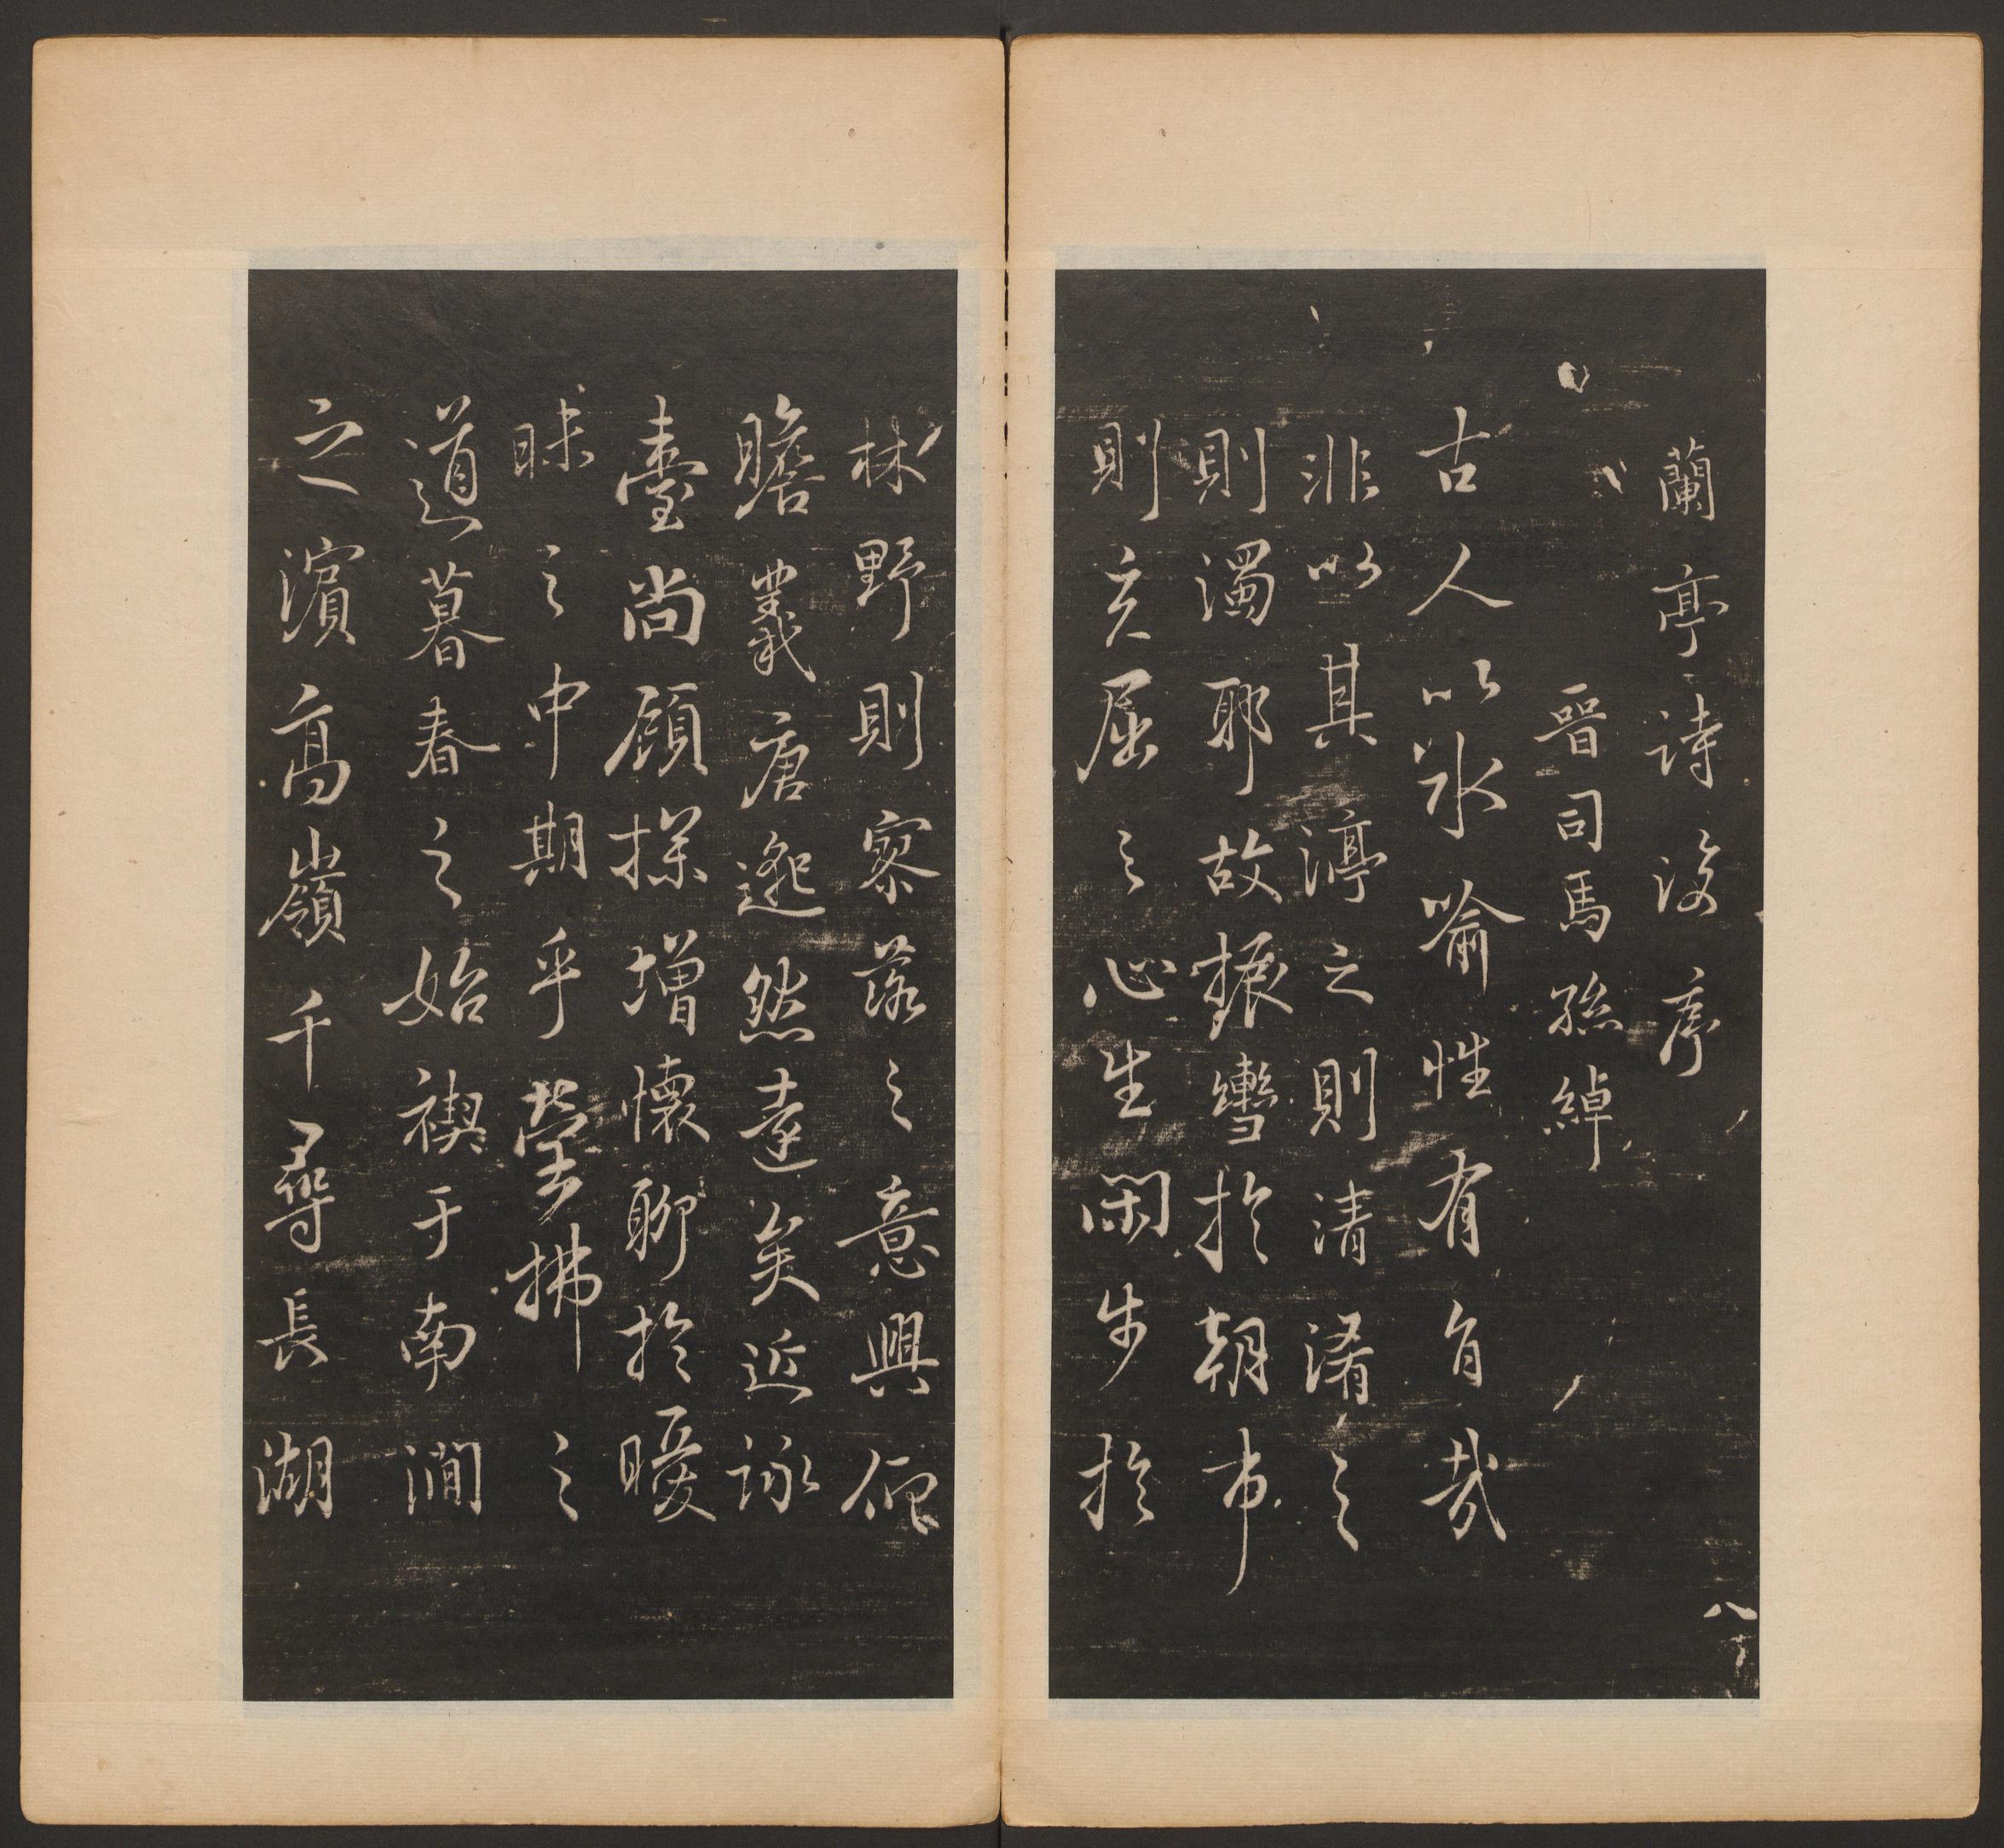 蘭亭詩後序
晉司馬孫綽
古人以水喻性有旨哉
非以其渟之則清淆之
則濁耶故振轡於朝市
則充屈之心生閑步於
林野則寥落之意興仰
瞻羲唐邈然遠矣近詠
臺尚顧探增懷聊於曖
昧之中期乎瑩拂之
道暮春之始禊于南澗
之濱高嶺千尋長湖